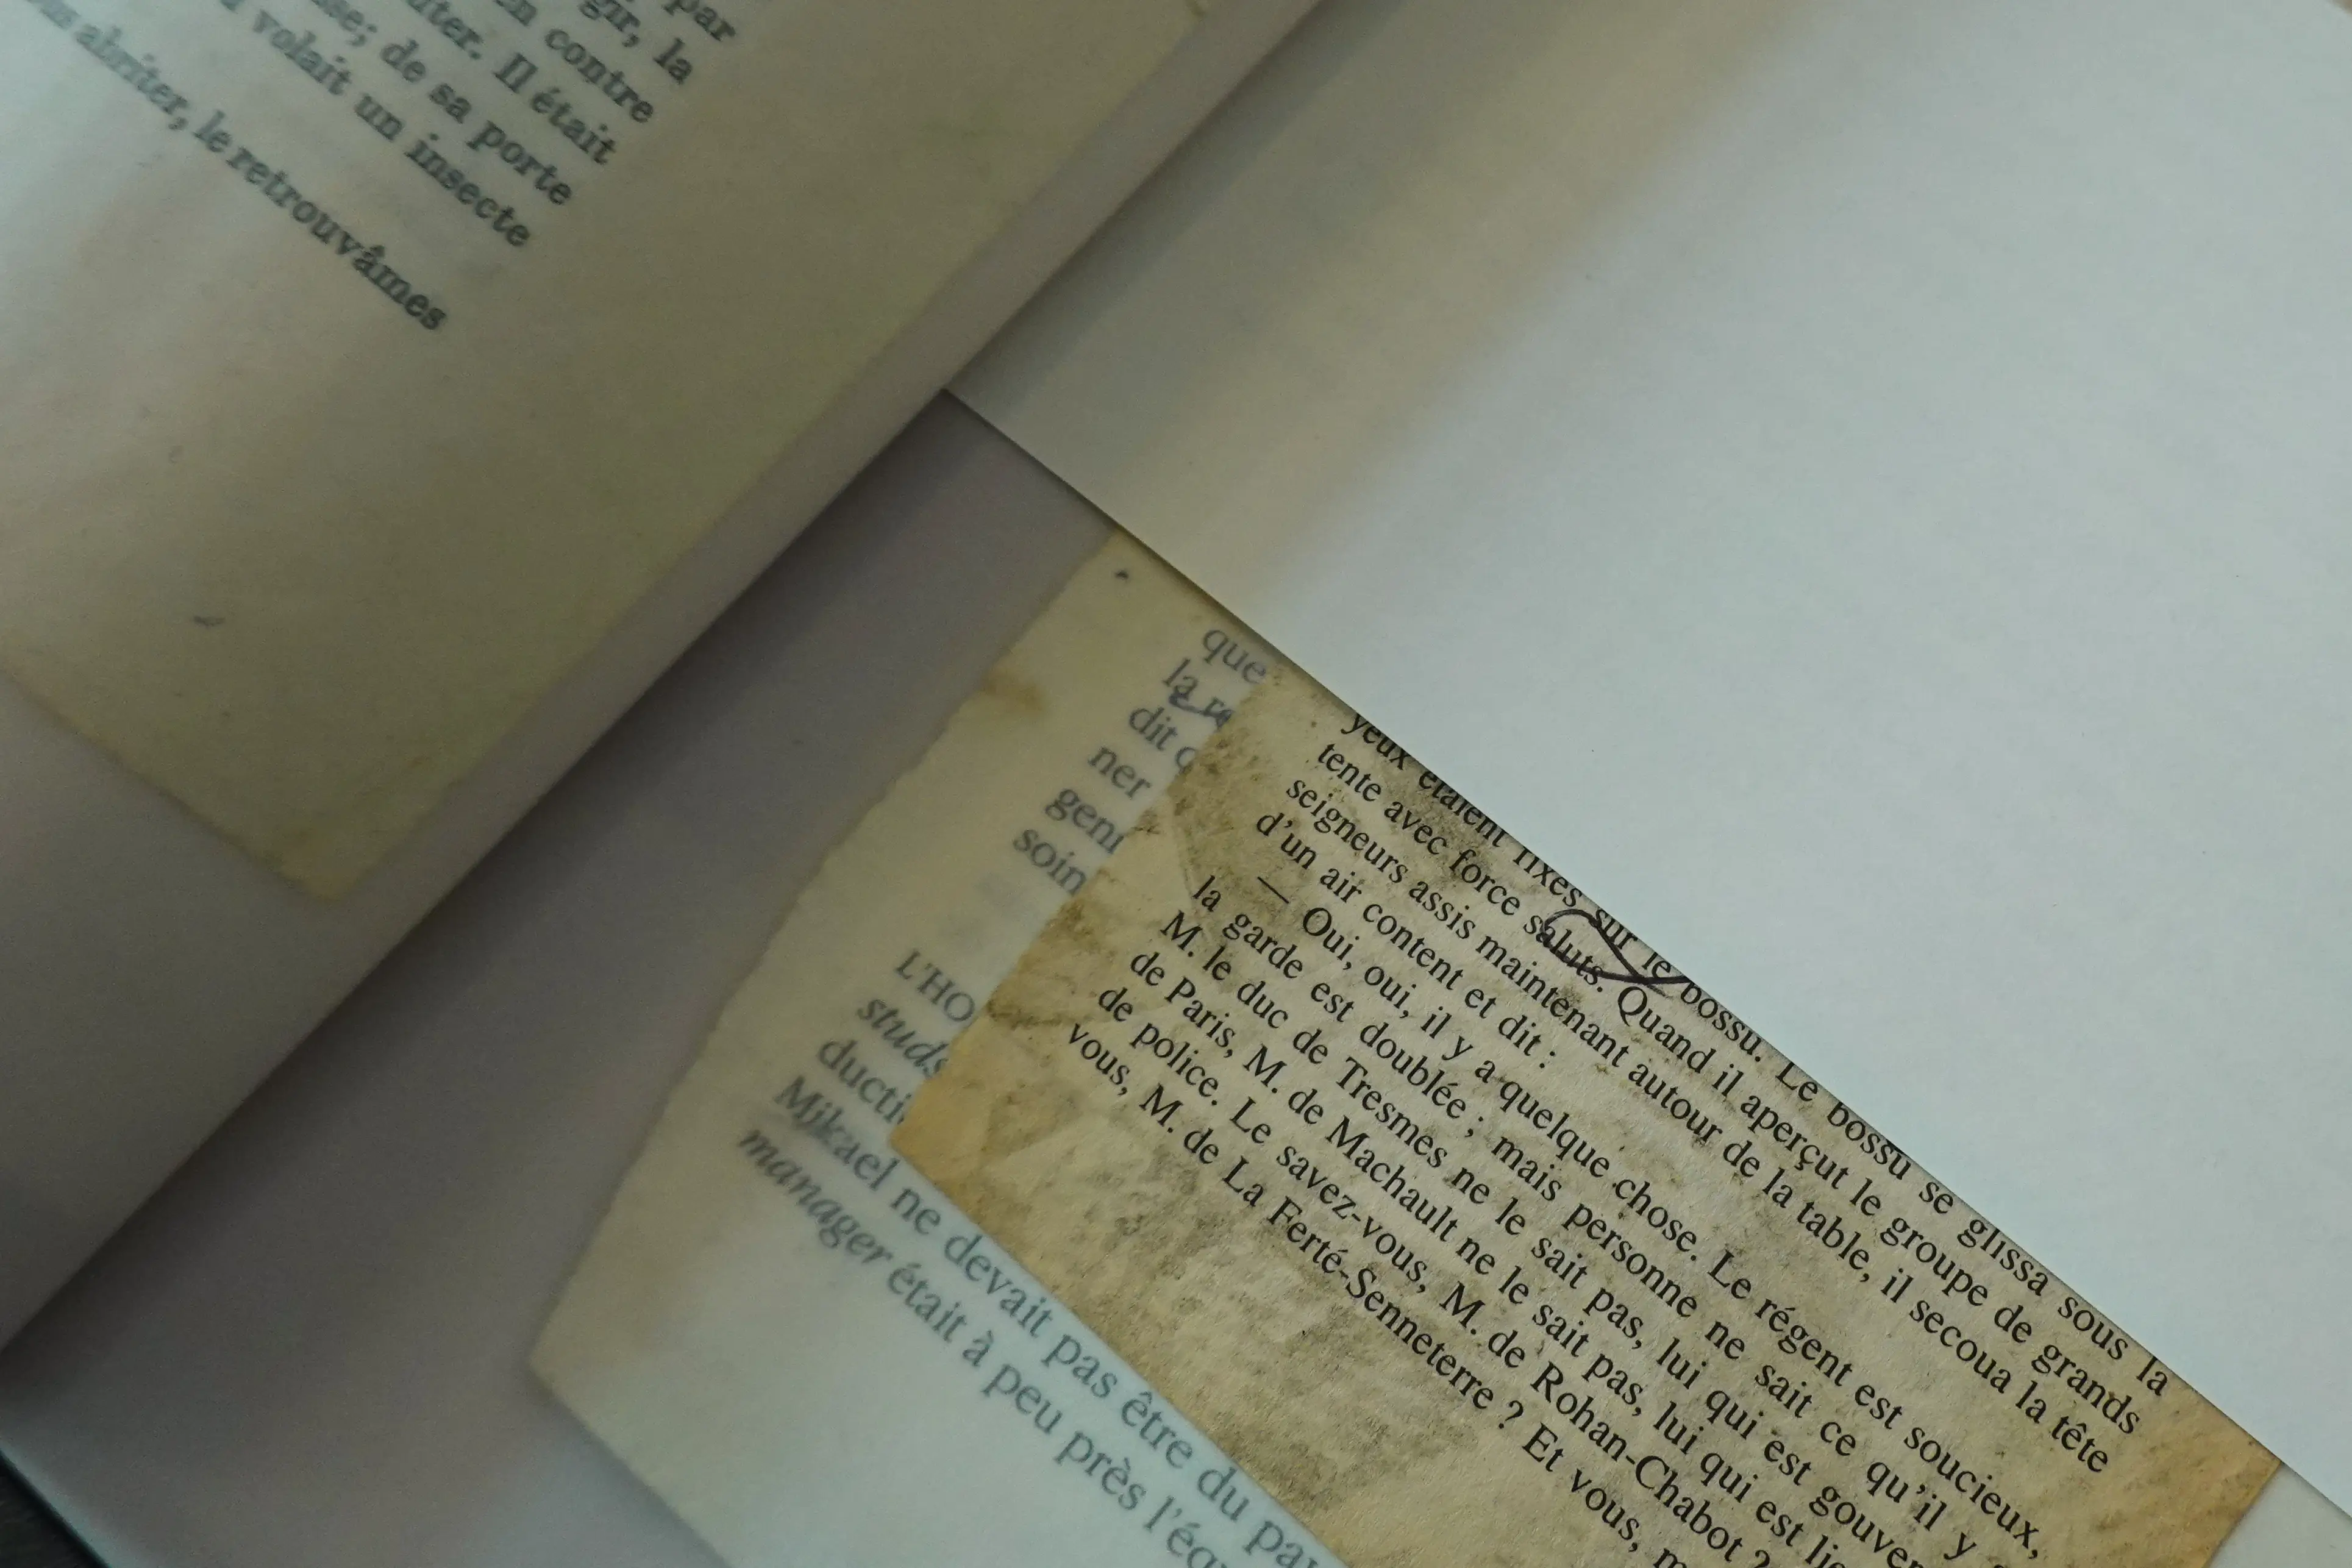 par
gir, la
en contre
uter. Il était
se; de sa porte
volait un insecte
abriter, le retrouvâmes
que
la re
dit q
ner
gent
soin
L'HO
studs
ducti
Mikael ne devait pas être du pa
manager était à peu près l'équ
yeux étaient fixés sur le bossu. Le bossu se glissa sous la
tente avec force saluts. Quand il aperçut le groupe de grands
seigneurs assis maintenant autour de la table, il secoua la tête
d'un air content et dit :
— Oui, oui, il y a quelque chose. Le régent est soucieux,
la garde est doublée ; mais personne ne sait ce qu'il y
M. le duc de Tresmes ne le sait pas, lui qui est gouver
de Paris, M. de Machault ne le sait pas, lui qui est lie
de police. Le savez-vous, M. de Rohan-Chabot ?
vous, M. de La Ferté-Senneterre ? Et vous, m